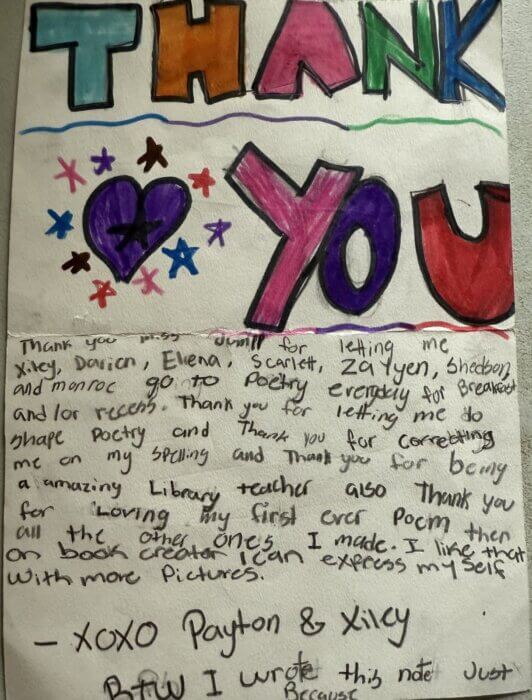 THANK
YOU
Thank you miss for letting me
Xiley, Darien, Eliena, Scarlett, Zalyen, Shedson,
and monroe go to Poetry everyday for Breakfast
and/or recess. Thank you for letting me do
shape Poetry and Thank you for correcting
me on my spelling and Thank you for being
a amazing Library teacher also Thank you
for Loving my first ever Poem then
all the other ones I made. I like that
on book creator I can express my self
with more Pictures.
- XOXO Payton & Xiley
BTW I wrote this note Just
Because